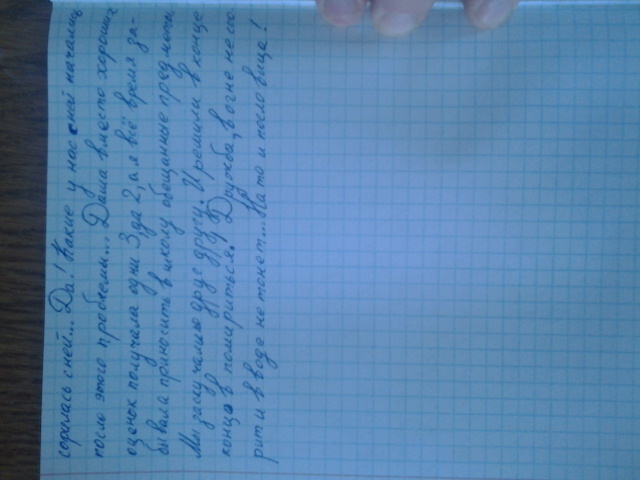 сорилась с ней... Да! Какие у нас с ней начались
после этого проблемы... Даша вместо хороших
оценок получала одни 3 да 2, а я всё время за-
бывала приносить в школу обещанные предметы.
Мы заскучали друг другу. И решили в конце
концов помириться. Дружба, в огне не го-
рит и в воде не тонет... На то и пословица!